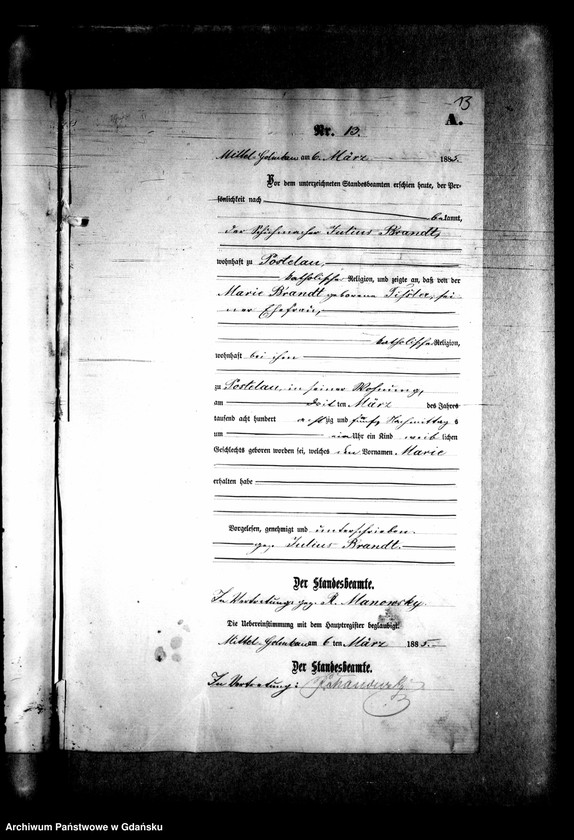 13
A.
Nr. 13.
Mittel-Golmkau am 6. März 1885.
Vor dem unterzeichneten Standesbeamten erschien heute, der Per-
sönlichkeit nach
bekannt,
der Schuhmacher Julius Brandt,
wohnhaft zu Postelau,
katholischer Religion, und zeigte an, daß von der
Marie Brandt geborene sei
ner Ehefrau,
katholischer Religion,
wohnhaft bei ihm
zu Postelau, in seiner Wohnung,
am ten März des Jahres
tausend acht hundert achtzig und fünf, Nachmittags
um ein Uhr ein Kind weiblichen
Geschlechts geboren worden sei, welches den Vornamen Marie
erhalten habe
Vorgelesen, genehmigt und unterschrieben.
gez. Julius Brandt.
Der Standesbeamte.
In Vertretung: gez. R. Manowsky.
Die Uebereinstimmung mit dem Hauptregister beglaubigt.
Mittel-Golmkau am 6 ten März 1885.
Der Standesbeamte.
In Vertretung:
Archiwum Państwowe w Gdańsku